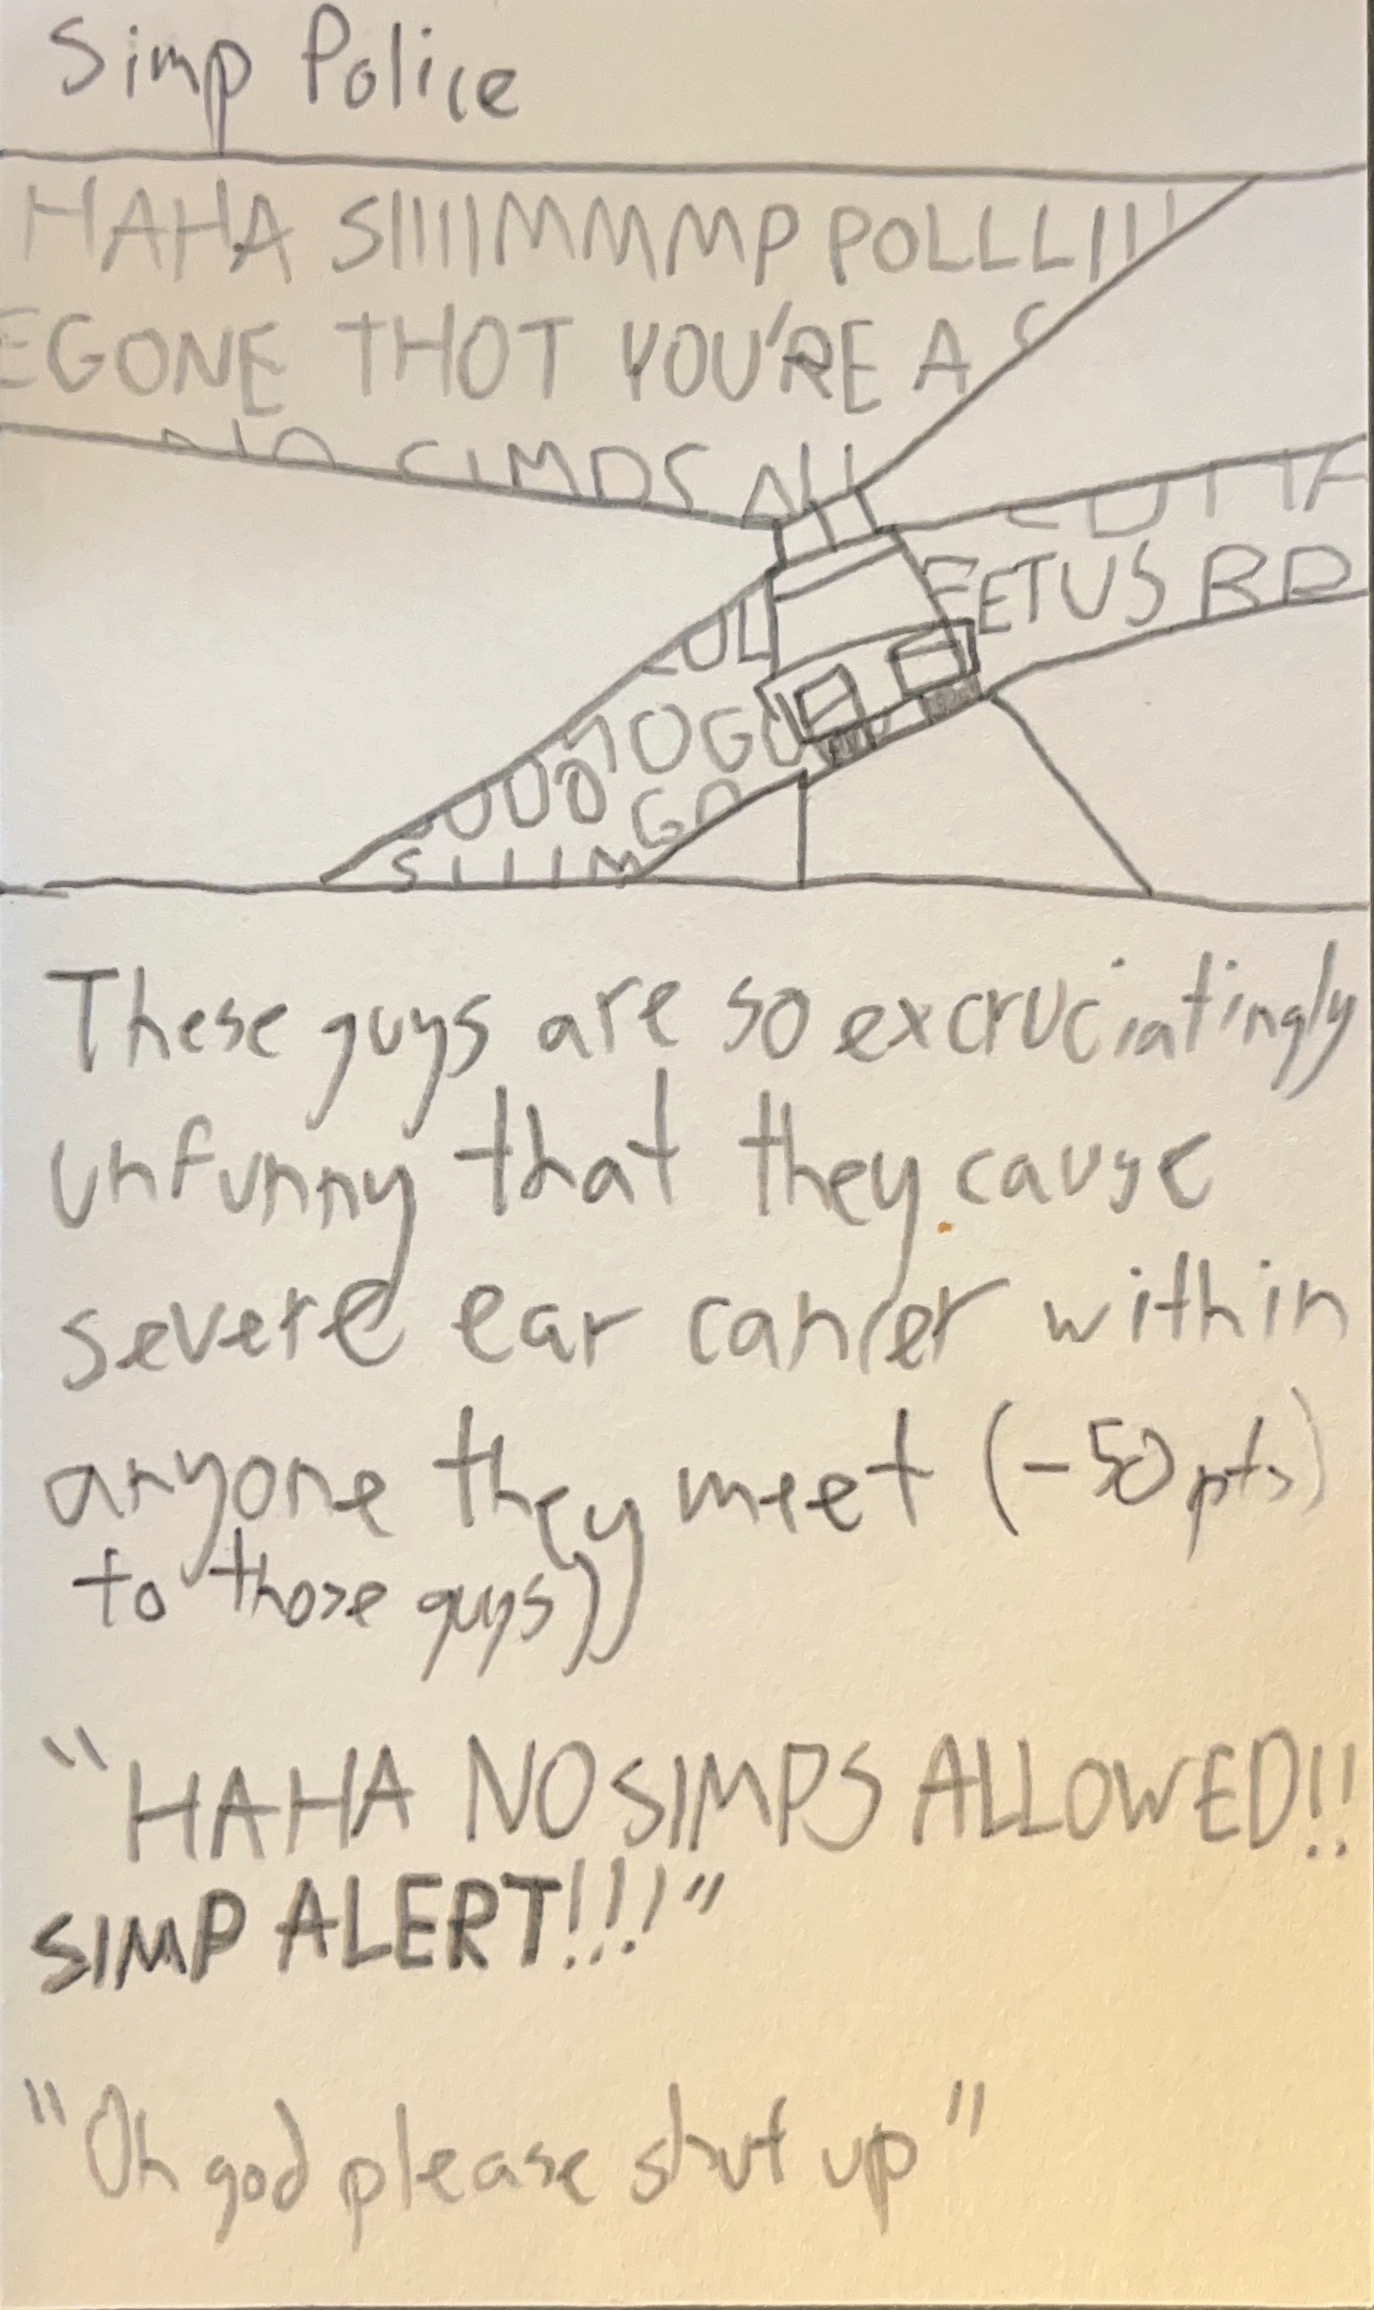 Simp Police
HAHA SIIIIMMMMP POLLLIII
EGONE THOT YOU'RE A S
SIMPS ALL
FETUS
SIIIIM
These guys are so excruciatingly
unfunny that they cause
severe ear cancer within
anyone they meet (-50 pts)
to those guys))
"HAHA NO SIMPS ALLOWED!!
SIMP ALERT!!!"
"Oh god please shut up"